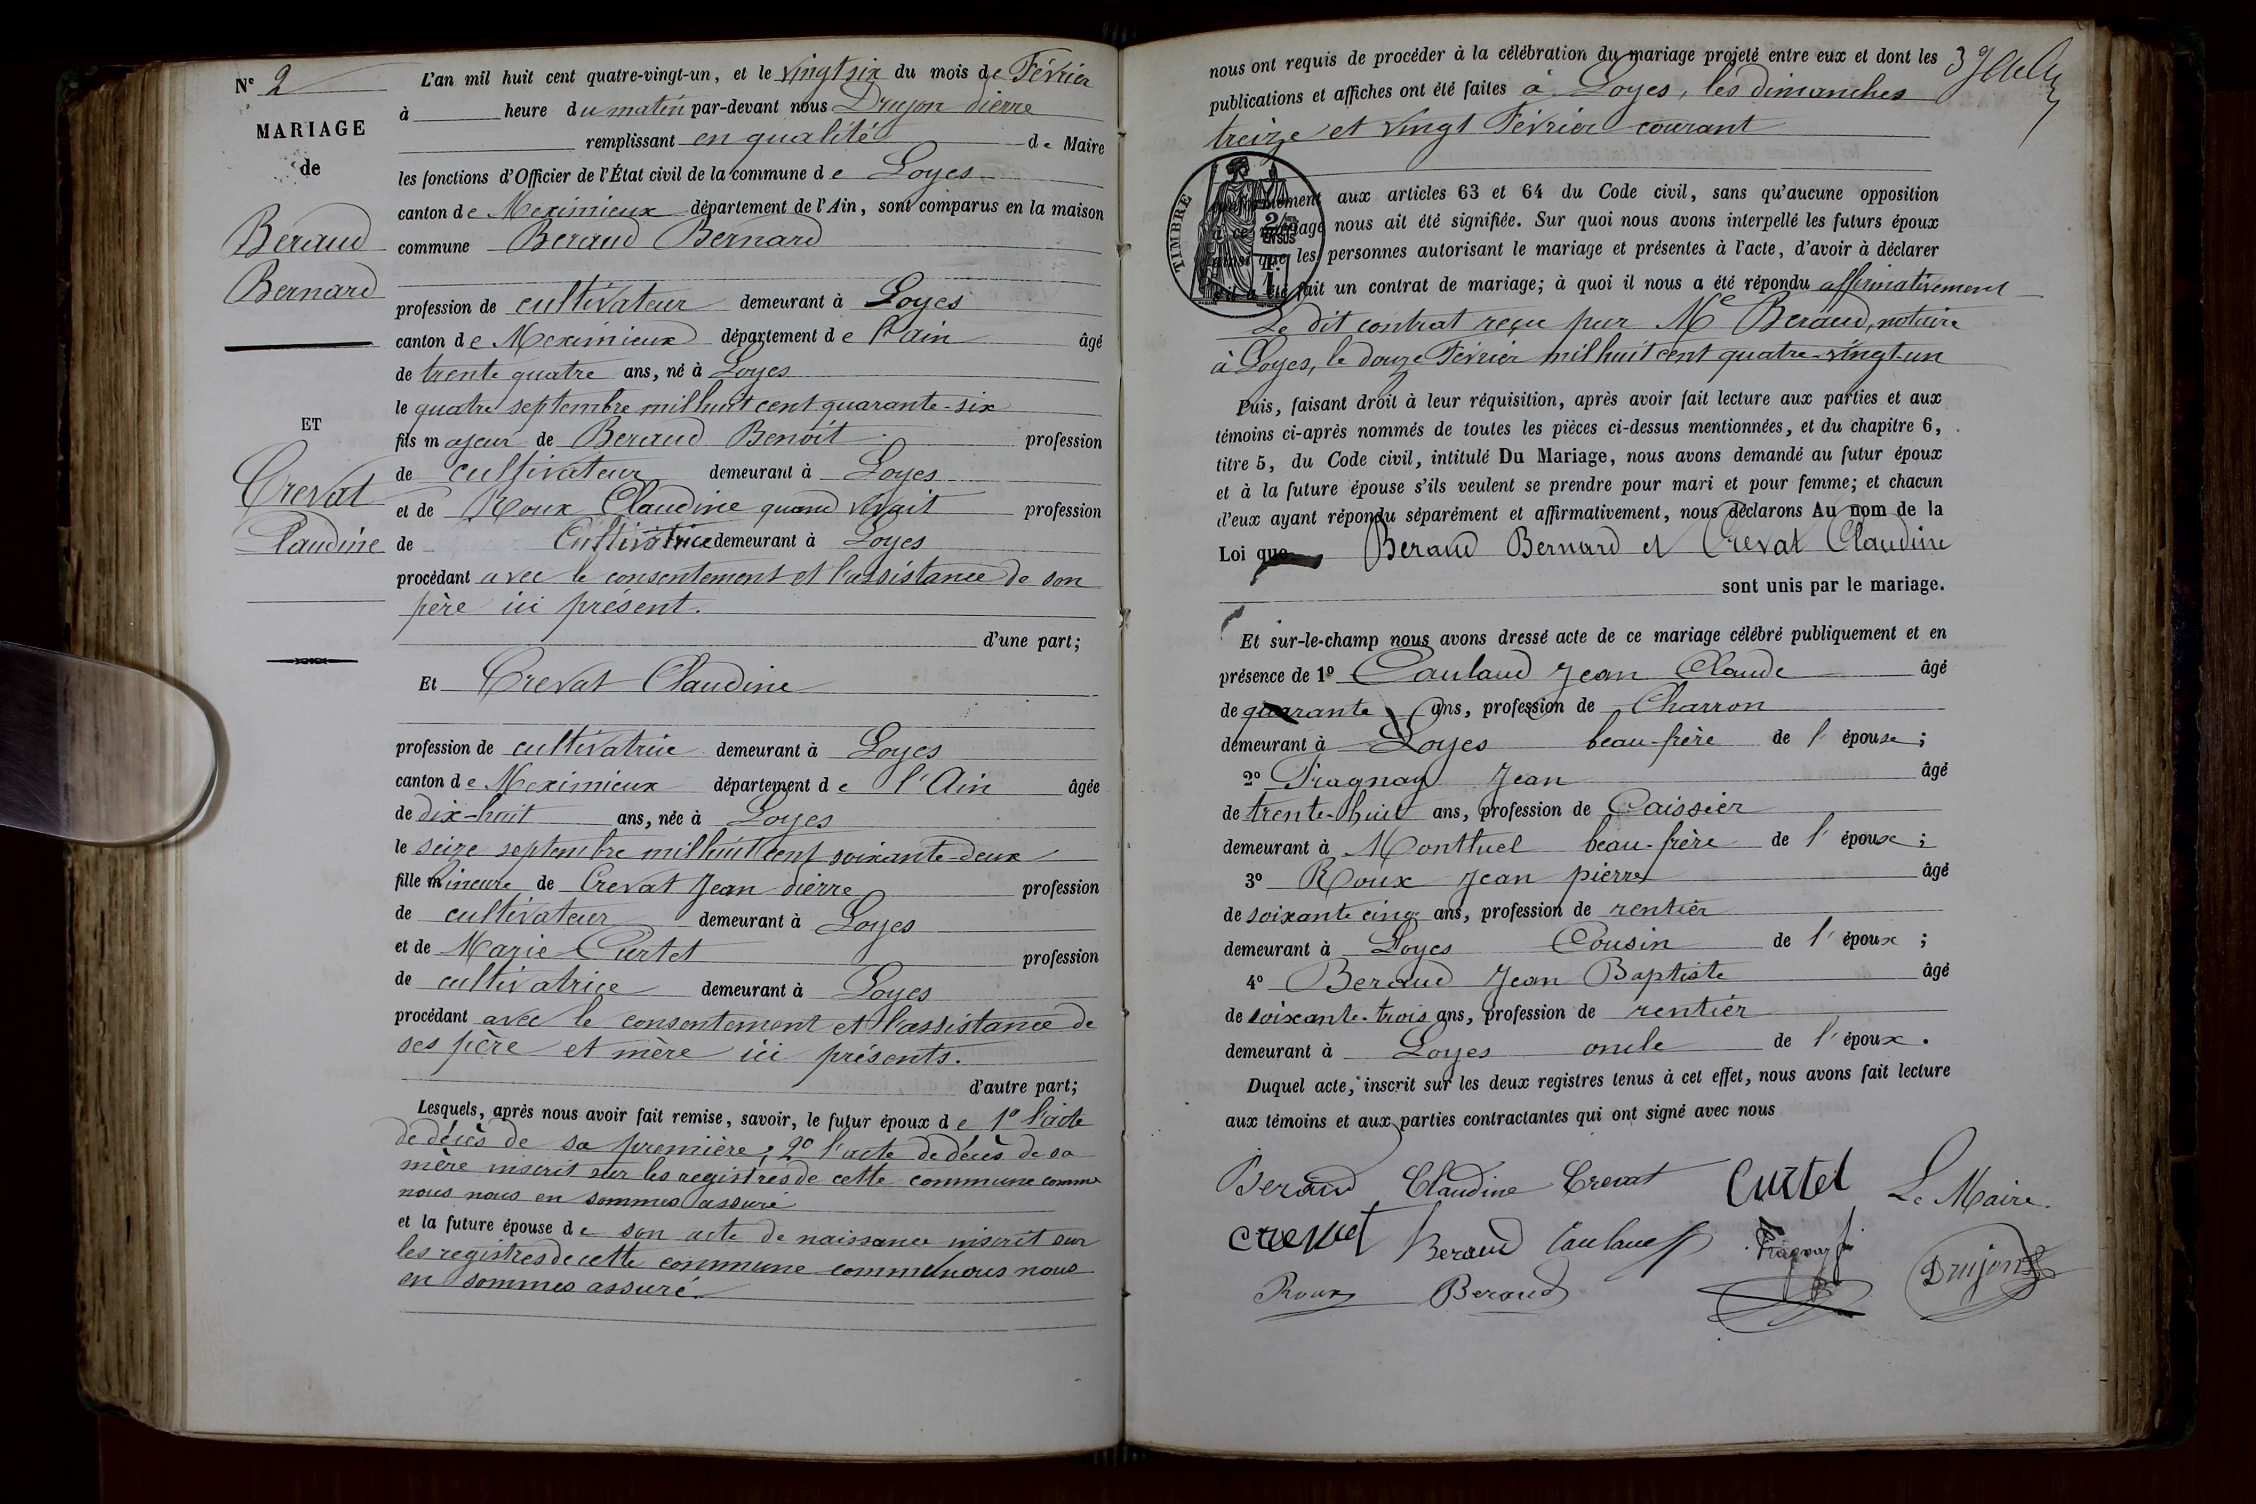 N° 2
MARIAGE
de
Beraud
Bernard
ET
Crevat
Claudine
L'an mil huit cent quatre-vingt-un, et le vingt six du mois de Février
à heure du matin par-devant nous Drujon Pierre
remplissant en qualité de Maire
les fonctions d'Officier de l'État civil de la commune de Loyes
canton de Meximieux département de l'Ain, sont comparus en la maison
commune Beraud Bernard
profession de cultivateur demeurant à Loyes
canton de Meximieux département de l'ain âgé
de trente quatre ans, né à Loyes
le quatre septembre mil huit cent quarante-six
fils majeur de Beraud Benoit profession
de cultivateur demeurant à Loyes
et de Roux Claudine quand vivait profession
de Cultivatrice demeurant à Loyes
procédant avec le consentement et l'assistance de son
père ici présent.
d'une part;
Et Crevat Claudine
profession de cultivatrice demeurant à Loyes
canton de Meximieux département de l'Ain âgée
de dix-huit ans, née à Loyes
le seize septembre mil huit cent soixante-deux
fille mineure de Crevat Jean Pierre profession
de cultivateur demeurant à Loyes
et de Marie Curtet profession
de cultivatrice demeurant à Loyes
procédant avec le consentement et l'assistance de
ses père et mère ici présents.
d'autre part;
Lesquels, après nous avoir fait remise, savoir, le futur époux de 1° l'acte
de décès de sa première; 2° l'acte de décès de sa
mère inscrit sur les registres de cette commune comme
nous nous en sommes assuré
et la future épouse de son acte de naissance inscrit sur
les registres de cette commune comme nous nous
en sommes assuré.
nous ont requis de procéder à la célébration du mariage projeté entre eux et dont les
publications et affiches ont été faites à Loyes, les dimanches
treize et vingt Février courant
TIMBRE
conformément aux articles 63 et 64 du Code civil, sans qu'aucune opposition
à ce mariage nous ait été signifiée. Sur quoi nous avons interpellé les futurs époux
ainsi que les personnes autorisant le mariage et présentes à l'acte, d'avoir à déclarer
s'il a été fait un contrat de mariage; à quoi il nous a été répondu affirmativement
Le dit contrat reçu par Me Beraud, notaire
à Loyes, le douze Février mil huit cent quatre-vingt-un
Puis, faisant droit à leur réquisition, après avoir fait lecture aux parties et aux
témoins ci-après nommés de toutes les pièces ci-dessus mentionnées, et du chapitre 6,
titre 5, du Code civil, intitulé Du Mariage, nous avons demandé au futur époux
et à la future épouse s'ils veulent se prendre pour mari et pour femme; et chacun
d'eux ayant répondu séparément et affirmativement, nous déclarons Au nom de la
Loi que Beraud Bernard et Crevat Claudine
sont unis par le mariage.
Et sur-le-champ nous avons dressé acte de ce mariage célébré publiquement et en
présence de 1° Caulaud Jean Claude âgé
de quarante ans, profession de Charron
demeurant à Loyes beau-frère de l'épouse;
2° Fragnay Jean âgé
de trente-huit ans, profession de Caissier
demeurant à Montluel beau-frère de l'épouse;
3° Roux Jean pierre âgé
de soixante cinq ans, profession de rentier
demeurant à Loyes Cousin de l'époux;
4° Beraud Jean Baptiste âgé
de soixante-trois ans, profession de rentier
demeurant à Loyes oncle de l'époux.
Duquel acte, inscrit sur les deux registres tenus à cet effet, nous avons fait lecture
aux témoins et aux parties contractantes qui ont signé avec nous
Beraud Claudine Crevat Curtet Le Maire.
Crevat Beraud Caulaud Fragnay Drujon
Roux Beraud